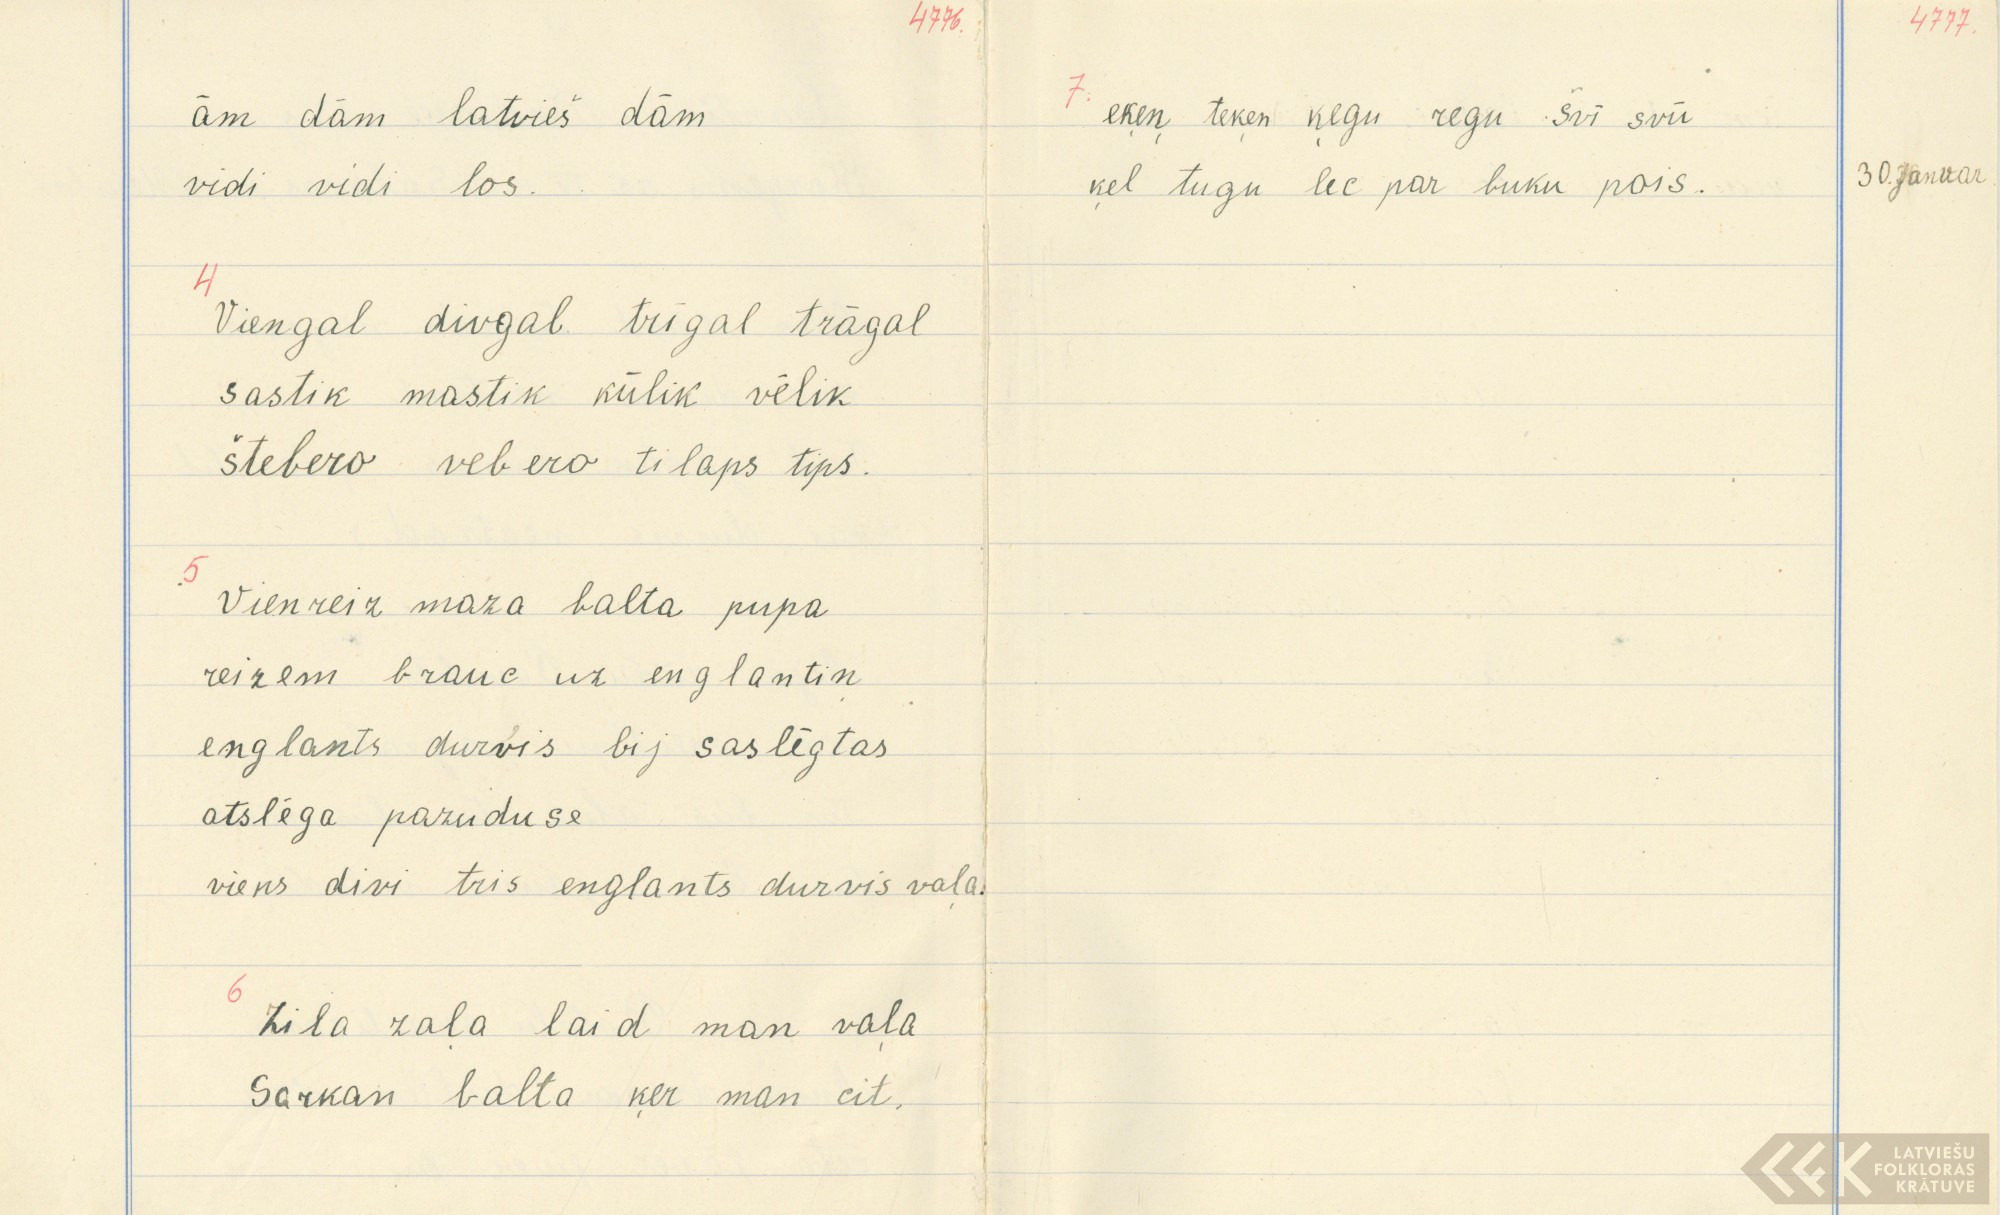 4776.
ām dām latvieš dām
vidi vidi los.
4
Viengal divgal trīgal trāgal
sastik mastik kūlik vēlik
štebero vebero tilaps tips.
5
Vienreiz maza balta pupa
reizem brauc uz englantiņ
englants durvis bij saslēgtas
atslēga pazuduse
viens divi tris englants durvis vaļa.
6
Zila zaļa laid man vaļa
Sarkan balta ķer man cit.
4777.
7.
eķeņ teķen ķegu regu švī svū
ķel tugu lec par buku pois.
30. Januar
LATVIEŠU
FOLKLORAS
KRĀTUVE